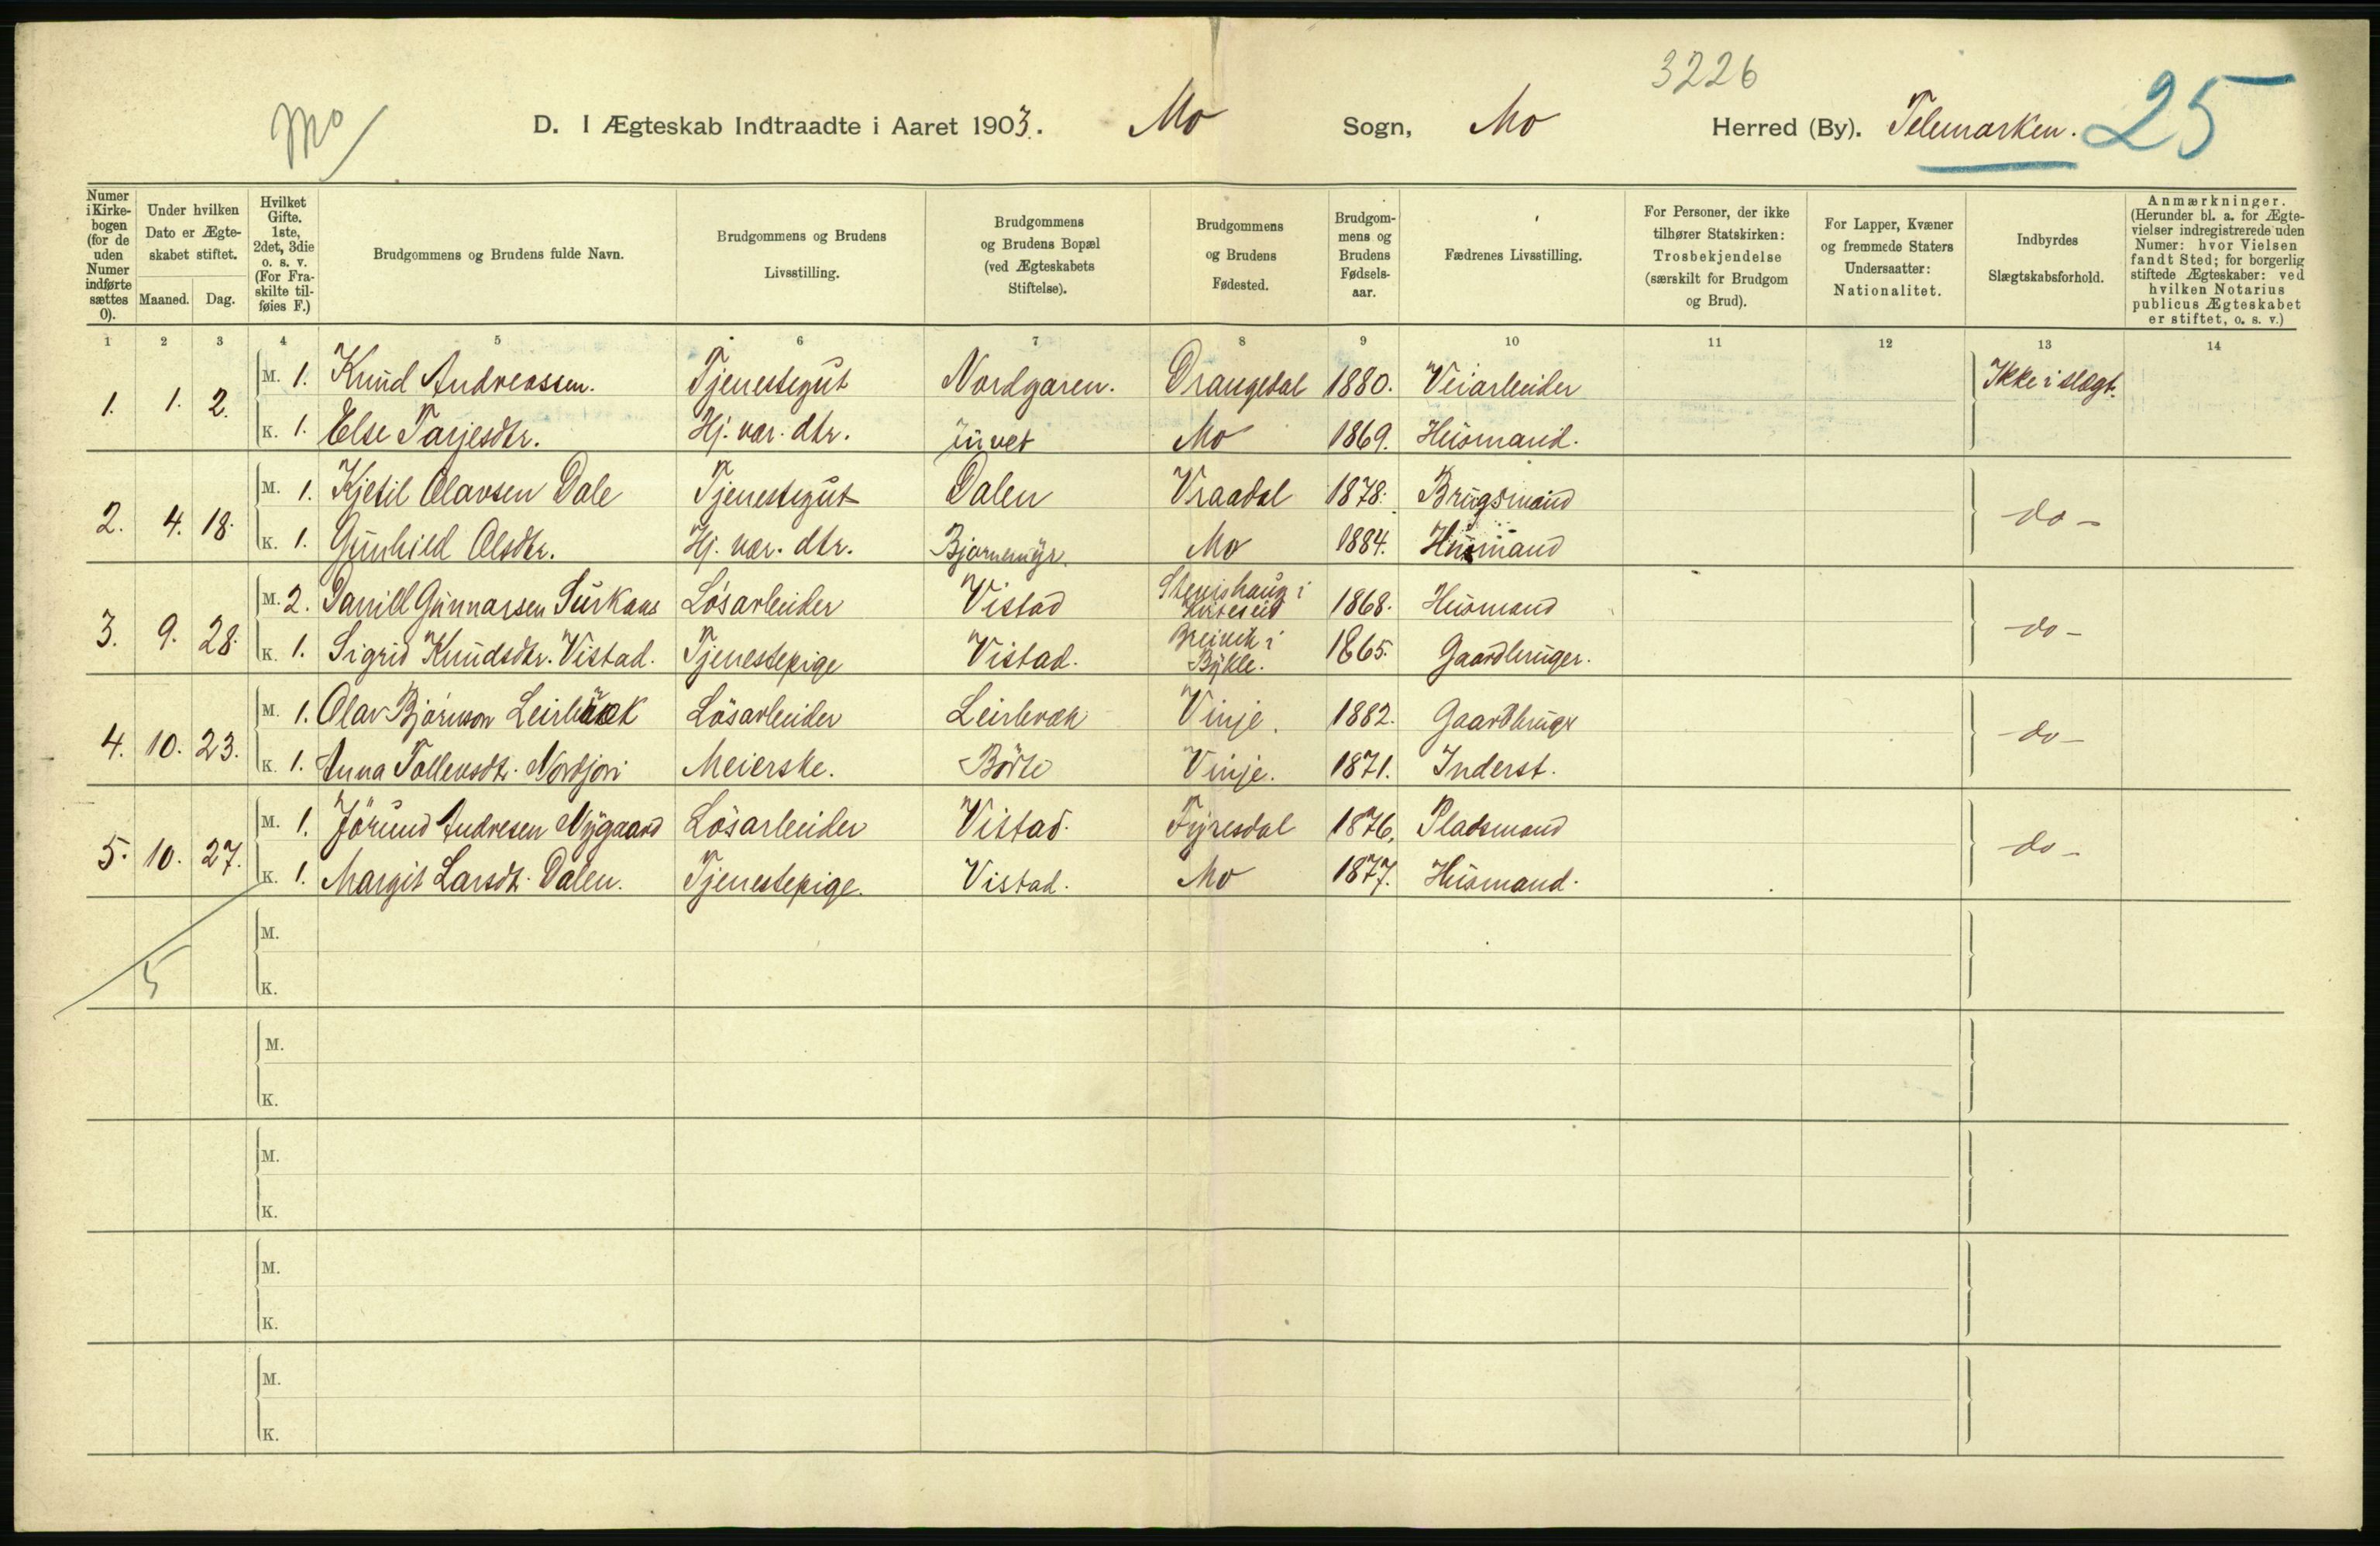 3226
Mo
D. I Ægteskab Indtraadte i Aaret 1903. Mo Sogn, Mo Herred (By). Telemarken. 25
Numer i Kirke-bogen (for de uden Numer indførte sættes 0).
Under hvilken Dato er Ægte-skabet stiftet.
Maaned. Dag.
Hvilket Gifte. 1ste, 2det, 3die o. s. v. (For Fra-skilte til-føies F.)
Brudgommens og Brudens fulde Navn.
Brudgommens og Brudens Livsstilling.
Brudgommens og Brudens Bopæl (ved Ægteskabets Stiftelse).
Brudgommens og Brudens Fødested.
Brudgom-mens og Brudens Fødsels-aar.
Fædrenes Livsstilling.
For Personer, der ikke tilhører Statskirken: Trosbekjendelse (særskilt for Brudgom og Brud).
For Lapper, Kvæner og fremmede Staters Undersaatter: Nationalitet.
Indbyrdes Slægtskabsforhold.
Anmærkninger. (Herunder bl. a. for Ægte-vielser indregistrerede uden Numer: hvor Vielsen fandt Sted; for borgerlig stiftede Ægteskaber: ved hvilken Notarius publicus Ægteskabet er stiftet, o. s. v.)
1 2 3 4 5 6 7 8 9 10 11 12 13 14
1. 1. 2. M. 1. Knud Andreassen. Tjenestegut Nordgaren. Drangedal 1880. Veiarbeider Ikke i slægt.
K. 1. Else Tarjesdtr. Hj. vær. dtr. Mo 1869. Husmand.
2. 4. 18. M. 1. Kjetil Olavsen Dale Tjenestegut Dalen Vraadal 1878. Brugsmand do -
K. 1. Gunhild Olsdtr. Hj. vær. dtr. Bjørnemyr. Mo 1884. Husmand
3. 9. 28. M. 2. Gunnarsen Løsarbeider Vistad i 1868. Husmand do -
K. 1. Sigrid Knudsdtr. Vistad. Tjenestepige Vistad. i Bykle. 1865. Gaardbruger.
4. 10. 23. M. 1. Olav Bjørnson Leirbæk Løsarbeider Leirbæk Vinje. 1882. Gaardbruger do -
K. 1. Anna Tollevsdtr. Nordjori Meierske. Børte Vinje. 1871. Inderst.
5. 10. 27. M. 1. Jørund Andresen Nygaard Løsarbeider Vistad. Fyresdal 1876. Pladsmand do -
K. 1. Margit Larsdtr. Dalen. Tjenestepige. Vistad. Mo 1877. Husmand.
M.
5
K.
M.
K.
M.
K.
M.
K.
M.
K.